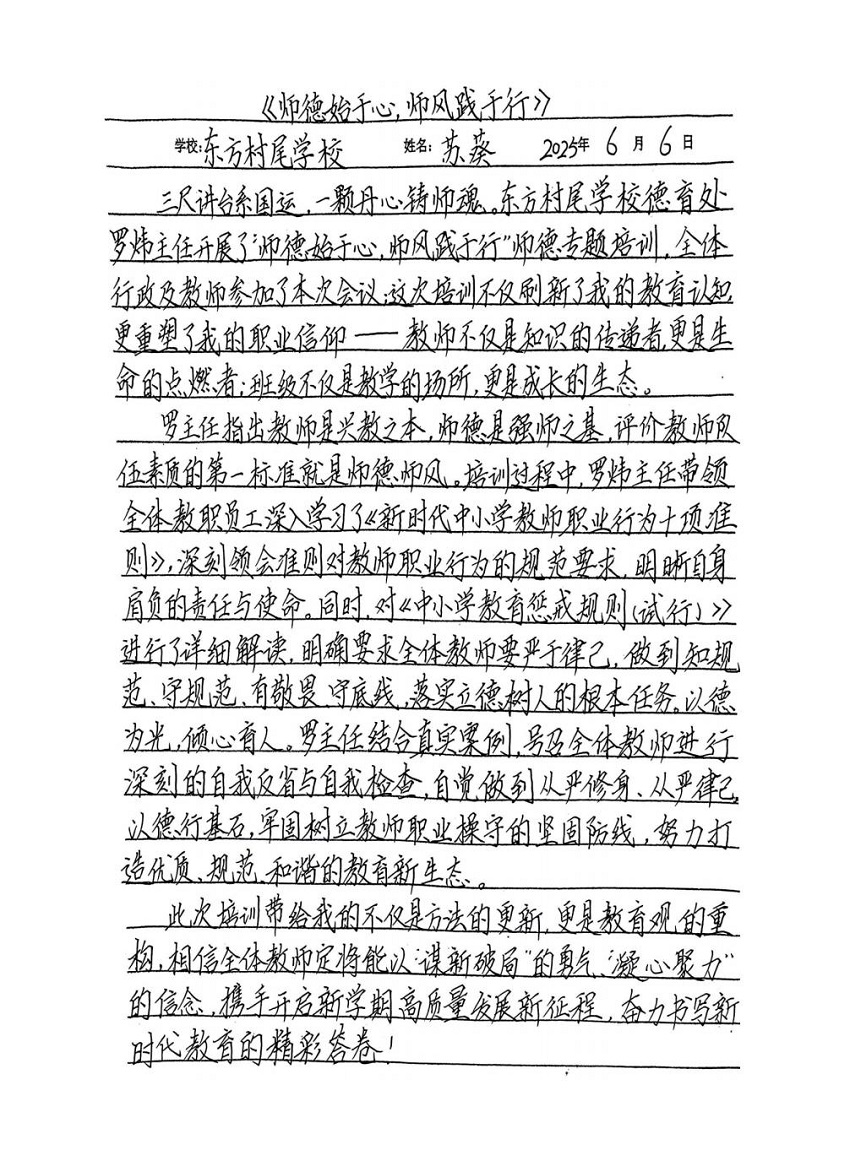 《师德始于心,师风践于行》
学校:东方村尾学校 姓名:苏葵 2025年6月6日
三尺讲台系国运,一颗丹心铸师魂。东方村尾学校德育处
罗炜主任开展了“师德始于心,师风践于行”师德专题培训,全体
行政及教师参加了本次会议;这次培训不仅刷新了我的教育认知,
更重塑了我的职业信仰——教师不仅是知识的传递者,更是生
命的点燃者;班级不仅是教学的场所,更是成长的生态。
罗主任指出教师是兴教之本,师德是强师之基,评价教师队
伍素质的第一标准就是师德师风。培训过程中,罗炜主任带领
全体教职员工深入学习了《新时代中小学教师职业行为十项准
则》,深刻领会准则对教师职业行为的规范要求,明晰自身
肩负的责任与使命。同时,对《中小学教育惩戒规则(试行)》
进行了详细解读,明确要求全体教师要严于律己,做到知规
范、守规范、有敬畏、守底线,落实立德树人的根本任务。以德
为光,倾心育人。罗主任结合真实案例,号召全体教师进行
深刻的自我反省与自我检查,自觉做到从严修身、从严律己,
以德行基石,牢固树立教师职业操守的坚固防线,努力打
造优质、规范、和谐的教育新生态。
此次培训带给我的不仅是方法的更新,更是教育观的重
构,相信全体教师定将能以“谋新破局”的勇气、“凝心聚力”
的信念,携手开启新学期高质量发展新征程,奋力书写新
时代教育的精彩答卷!